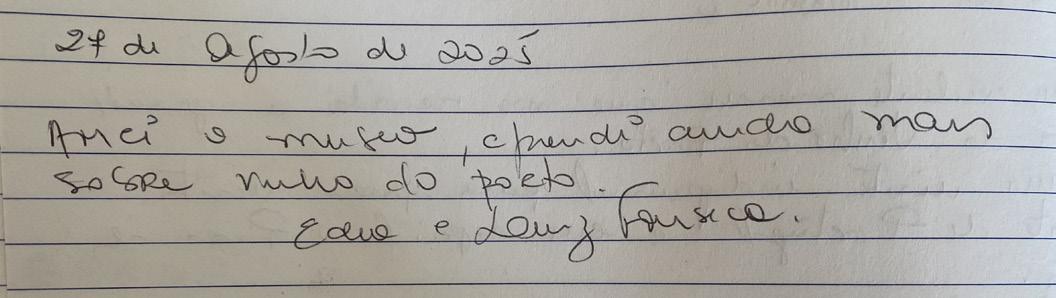 27 de Agosto de 2025
Amei o museu, aprendi ainda mais
sobre vinho do porto.
e Fonseca.